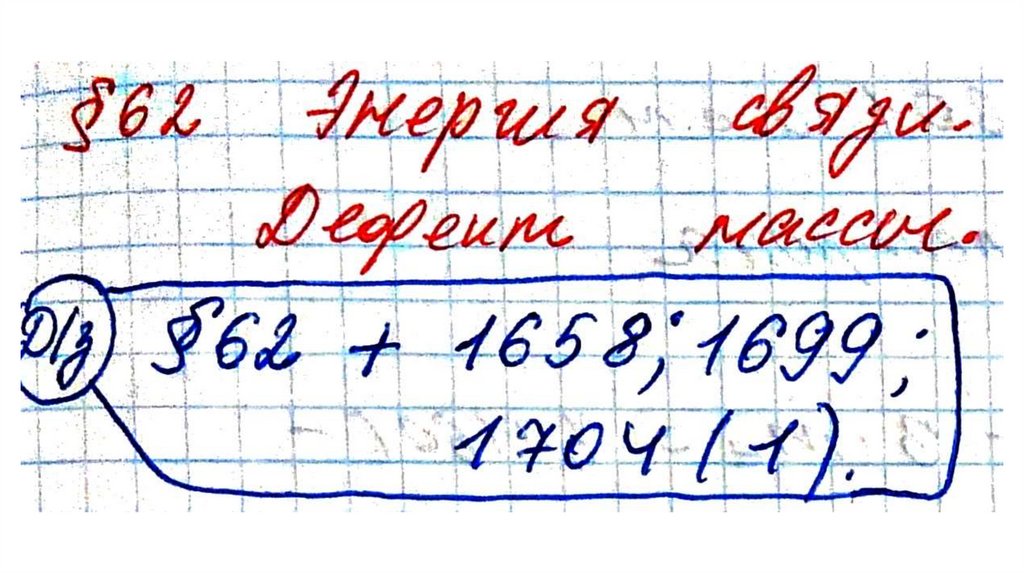 §62 Энергия связи.
Дефект массы.
Д/з §62 + 1658; 1699;
1704 (1).